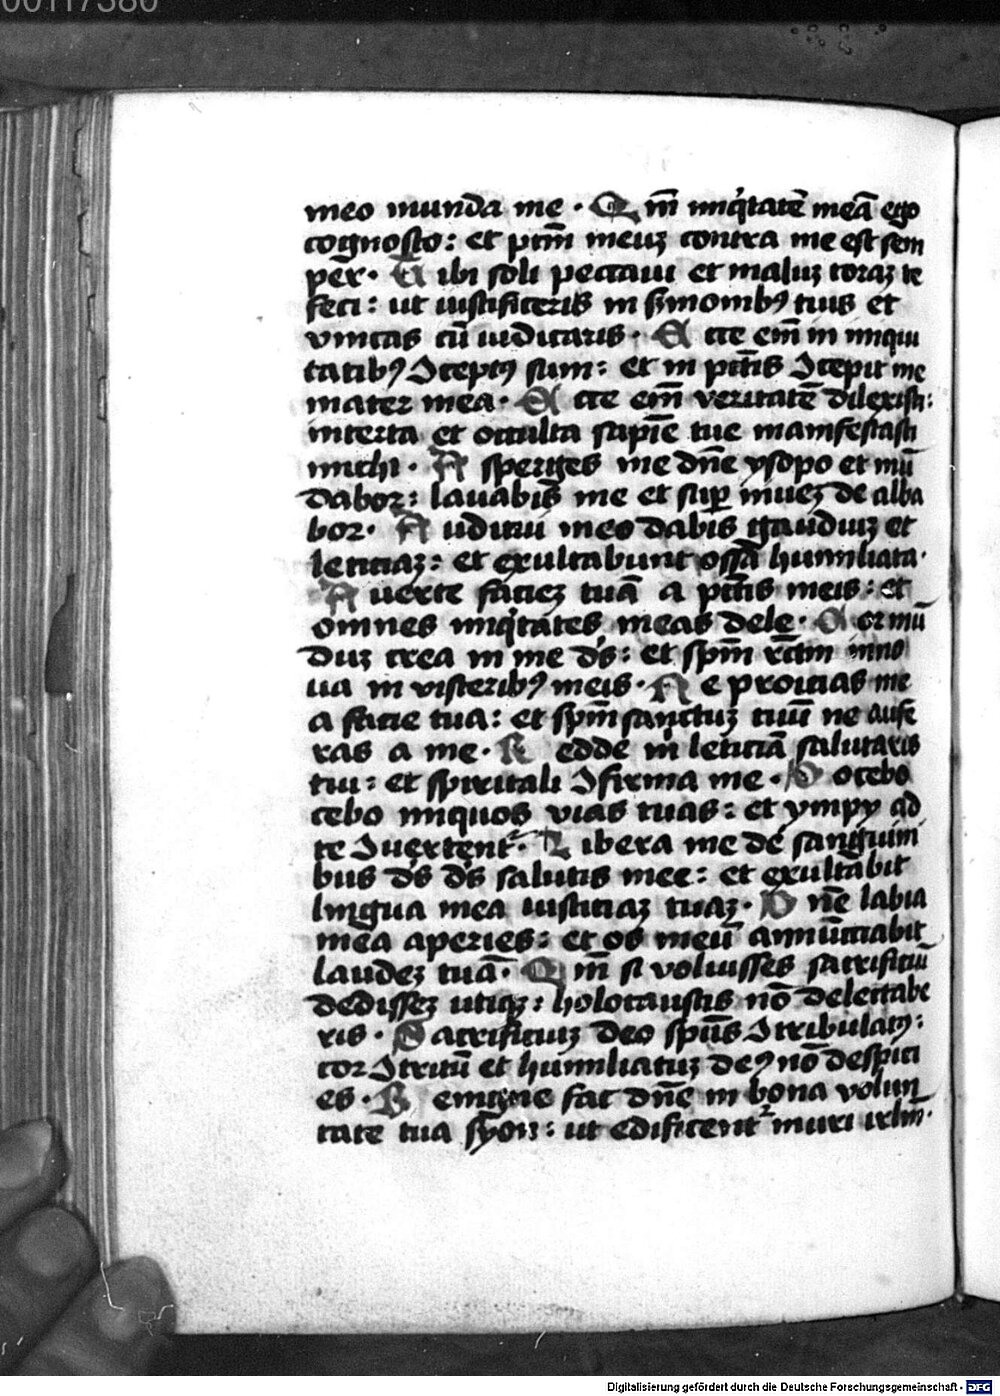 00117380
meo munda me · Qm̄ iniq̇tatē meā ego
cognosco : et pctm̄ meuz contra me est sem
per · Tibi soli peccaui et maluz coraz te
feci : ut iustificeris in s̄monibꝰ tuis et
vincas cū iudicaris · Ecce em̄ in iniqui
tatibꝰ Ↄceptꝰ sum : et in pctīs Ↄcepit me
mater mea · Ecce em̄ veritatē dilexisti :
incerta et occulta sapīe tue manifestasti
michi · Asperges me dn̄e ysopo et mū
dabor : lavabis me et sup̄ niuez de alba
bor · Auditui meo dabis gaudiuz et
leticiaz : et exultabunt ossa humiliata ·
Auerte faciez tuā a pctīs meis : et
omnes iniq̇tates meas dele · Cor mū
duz crea in me ds̄ : et spm̄ rc̄tm inno
ua in visceribꝰ meis · Ne proicias me
a facie tua : et spm̄ sanctuz tuū ne aufe
ras a me · Redde m̄ leticiā salutaris
tui : et spiritali Ↄfirma me · Docebo
cebo iniquos vias tuas : et ympy ad
te Ↄuertent᷑ · Libera me de sanguini
bus ds̄ ds̄ salutis mee : et exultabit
lingua mea iusticiaz tuaz · Dn̄e labia
mea aperies : et os meū annūciabit
laudez tuā · Qm̄ si voluisses sacrificiū
dedissez utiqz : holocaustis nō delectabe
ris · Sacrificiuz deo sp̄us Ↄtribulatꝰ :
cor Ↄtritū et humiliatuz deꝰ nō despici
es · Benigne fac dn̄e in bona volun
tate tua syon : ut edificent᷑ muri irlm̄ ·
Digitalisierung gefördert durch die Deutsche Forschungsgemeinschaft - DFG